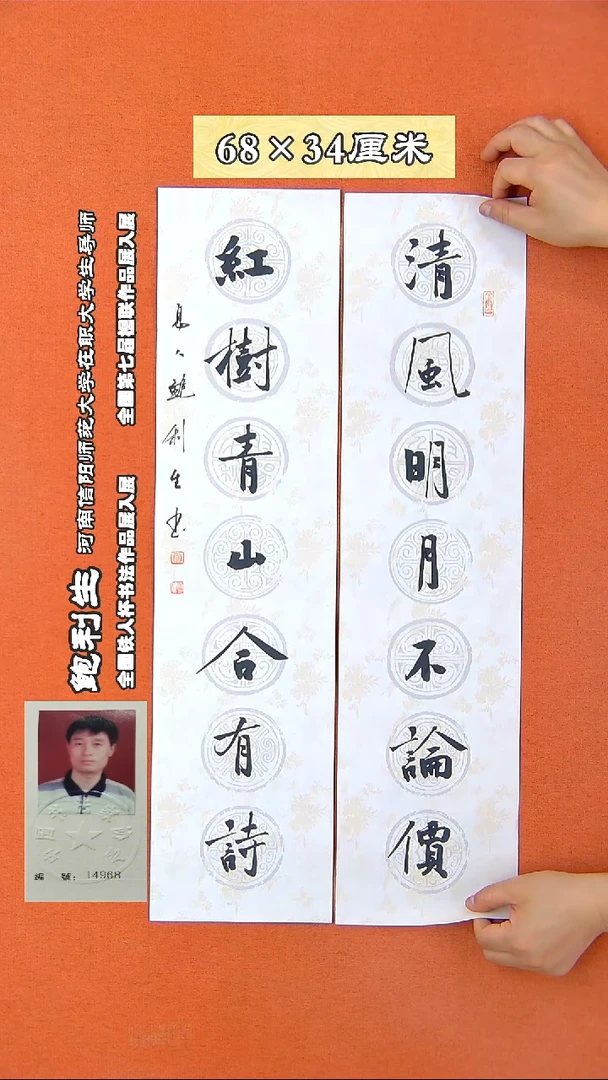 68×34厘米
清風明月不論價
紅樹青山合有詩
鮑利生书
鲍利生
河南信阳师范大学在职大学生导师
全国铁人杯书法作品展入展
全国第七届楹联作品展入展
编號：14968